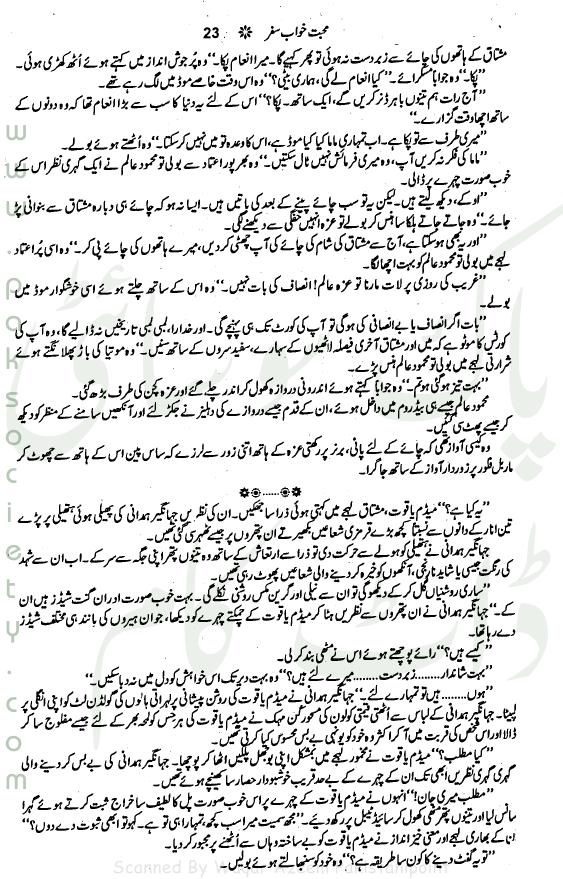 محبت خواب سفر ❋ 23
مشتاق کے ہاتھوں کی چائے سے زبردست نہ ہوئی تو پھر کہیے گا۔ میرا انعام پکا۔‘‘ وہ پُر جوش انداز میں کہتے ہوئے اُٹھ کھڑی ہوئی۔
’’پکا۔‘‘ وہ جواباً مسکرائے۔ ’’کیا انعام لے گی، ہماری بیٹی؟‘‘ وہ اس وقت خاصے موڈ میں لگ رہے تھے۔
’’آج رات ہم تینوں باہر ڈنر کریں گے، ایک ساتھ۔ پکا؟‘‘ اس کے لئے یہ دنیا کا سب سے بڑا انعام تھا کہ وہ دونوں کے
ساتھ اچھا وقت گزارے۔
’’میری طرف سے تو پکا ہے۔ اب تمہاری ماما کیا کیا موڈ ہے، اس کا وعدہ تو میں نہیں کر سکتا۔‘‘ وہ اُٹھتے ہوئے بولے۔
’’ماما کی فکر نہ کریں آپ، وہ میری فرمائش نہیں ٹال سکتیں۔‘‘ وہ بھرپور اعتماد سے بولی تو محمود عالم نے ایک گہری نظر اس کے
خوب صورت چہرے پر ڈالی۔
’’اوکے، دیکھ لیتے ہیں۔ لیکن یہ تو سب چائے پینے کے بعد کی باتیں ہیں۔ ایسا نہ ہو کہ چائے ہی دوبارہ مشتاق سے بنوانی پڑ
جائے۔‘‘ وہ جاتے جاتے ہلکا سا ہنس کر بولے تو عزہ انہیں خفگی سے دیکھنے لگی۔
’’اور یہ بھی ہو سکتا ہے، آج سے مشتاق کی شام کی چائے کی آپ چھٹی کر دیں، میرے ہاتھوں کی چائے پی کر۔‘‘ وہ اسی پُر اعتماد
لہجے میں بولی تو محمود عالم کو بہت اچھا لگا۔
’’غریب کی روزی پر لات مارنا تو عزہ عالم! انصاف کی بات نہیں۔‘‘ وہ اس کے ساتھ چلتے ہوئے اسی خوشگوار موڈ میں
بولے۔
’’بات اگر انصاف یا بے انصافی کی ہوگی تو آپ کی کورٹ تک ہی پہنچے گی۔ اور خدارا، لمبی لمبی تاریخیں نہ ڈالیے گا، وہ آپ کی
کورٹس کا موٹو ہے کہ میں اور مشتاق آخری فیصلہ لاٹھیوں کے سہارے، سفید سروں کے ساتھ سنیں۔‘‘ وہ موتیا کی باڑ پھلانگتے ہوئے
شرارتی لہجے میں بولی تو محمود عالم ہنس پڑے۔
’’بہت تیز ہو گئی ہو تم۔‘‘ وہ جواباً کہتے ہوئے اندرونی دروازہ کھول کر اندر چلے گئے اور عزہ کچن کی طرف بڑھ گئی۔
محمود عالم جیسے ہی بیڈ روم میں داخل ہوئے، ان کے قدم جیسے دروازے کی دہلیز نے جکڑ لئے اور آنکھیں سامنے کے منظر کو دیکھ
کر جیسے پھٹ سی گئیں۔
وہ کیسی آواز تھی کہ چائے کے لئے پانی، برنر پر رکھتی عزہ کے ہاتھ اتنی زور سے لرزے کہ ساس پین اس کے ہاتھ سے چھوٹ کر
ماربل فلور پر زور دار آواز کے ساتھ جا گرا۔
❋......❋
’’یہ کیا ہے؟‘‘ میڈم یاقوت، مشتاق لہجے میں کہتی ہوئی ذرا سا جھکیں۔ ان کی نظریں جہانگیر ہمدانی کی پھیلی ہوئی ہتھیلی پر پڑے
تین انار کے دانوں سے نسبتاً کچھ بڑے قرمزی شعاعیں بکھیرتے ان پتھروں پر جیسے ٹھہر سی گئی تھیں۔
جہانگیر ہمدانی نے ہتھیلی کو ہولے سے حرکت دی تو ذرا سے ارتعاش کے ساتھ وہ تینوں پتھر اپنی جگہ سے سرکے۔ اب ان سے شہد
کی رنگت جیسی یا شاید نارنجی، آنکھوں کو خیرہ کر دینے والی شعاعیں پھوٹ رہی تھیں۔
’’ساری روشنیاں گُل کر کے دیکھو گی تو ان سے نیلی اور گرین مکس روشنی نکلے گی۔ بہت خوب صورت اور ان گنت شیڈز ہیں ان
کے۔‘‘ جہانگیر ہمدانی نے ان پتھروں سے نظریں ہٹا کر میڈم یاقوت کے چمکتے چہرے کو دیکھا، جو ان ہیروں کی مانند ہی مختلف شیڈز
دے رہا تھا۔
’’کیسے ہیں؟‘‘ رائے پوچھتے ہوئے اس نے مٹھی بند کر لی۔
’’بہت شاندار......... زبردست......... میرے لئے ہیں؟‘‘ وہ بہت دیر تک اس خواہش کو دل میں نہ دبا سکیں۔
’’ہوں......... ہیں تو تمہارے لئے۔‘‘ جہانگیر ہمدانی نے میڈم یاقوت کی روشن پیشانی پر لہراتی بالوں کی گولڈن لٹ کو اپنی انگلی پر
لپیٹا۔ جہانگیر ہمدانی کے لباس سے اُٹھتی قیمتی کولون کی مسحور کن مہک نے میڈم یاقوت کی ہر حس کو لمحہ بھر کے لئے جیسے مفلوج سا کر
ڈالا اور اس شخص کی قربت میں آ کر اکثر وہ خود کو یونہی بے بس محسوس کیا کرتی تھیں۔
’’کیا مطلب؟‘‘ میڈم یاقوت نے مخمور لہجے میں بمشکل اپنی بوجھل پلکیں اٹھا کر پوچھا۔ جہانگیر ہمدانی کی بے بس کر دینے والی
گہری گہری نظریں ابھی تک ان کے چہرے کے بے حد قریب خوشبودار حصار سا کھینچے ہوئے تھیں۔
’’مطلب میری جان!‘‘ انہوں نے میڈم یاقوت کے چہرے پر اس خوب صورت پل کا لطیف سا خراج ثبت کرتے ہوئے گہرا
سانس لیا اور تینوں پتھر مٹھی کھول کر سائیڈ ٹیبل پر رکھ دیئے۔ ’’مجھ سمیت میرا سب کچھ، تمہارا ہی تو ہے۔ کہو تو ابھی ثبوت دے دوں؟‘‘
ان کے بھاری لہجے اور معنی خیز انداز نے میڈم یاقوت کو بے ساختہ وہاں سے اُٹھنے پر مجبور کر دیا۔
’’تو یہ گفٹ دینے کا کون سا طریقہ ہے؟‘‘ وہ خود کو سنبھالتے ہوئے بولیں۔
www.paksociety.com
پاک سوسائٹی
ڈاٹ کام
Scanned By Waqar Azeem Pakistanipoint